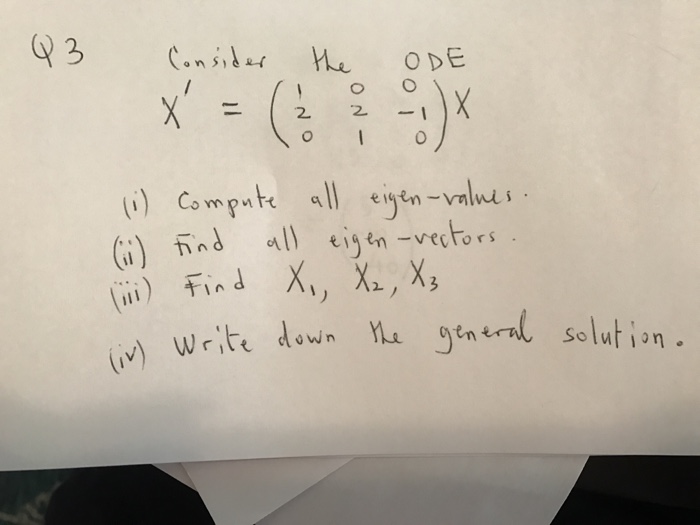 Q3 Consider the ODE
X' = ( 1 0 0
2 2 -1
0 1 0 ) X
(i) Compute all eigen-values.
(ii) Find all eigen-vectors.
(iii) Find X₁, X₂, X₃
(iv) Write down the general solution.